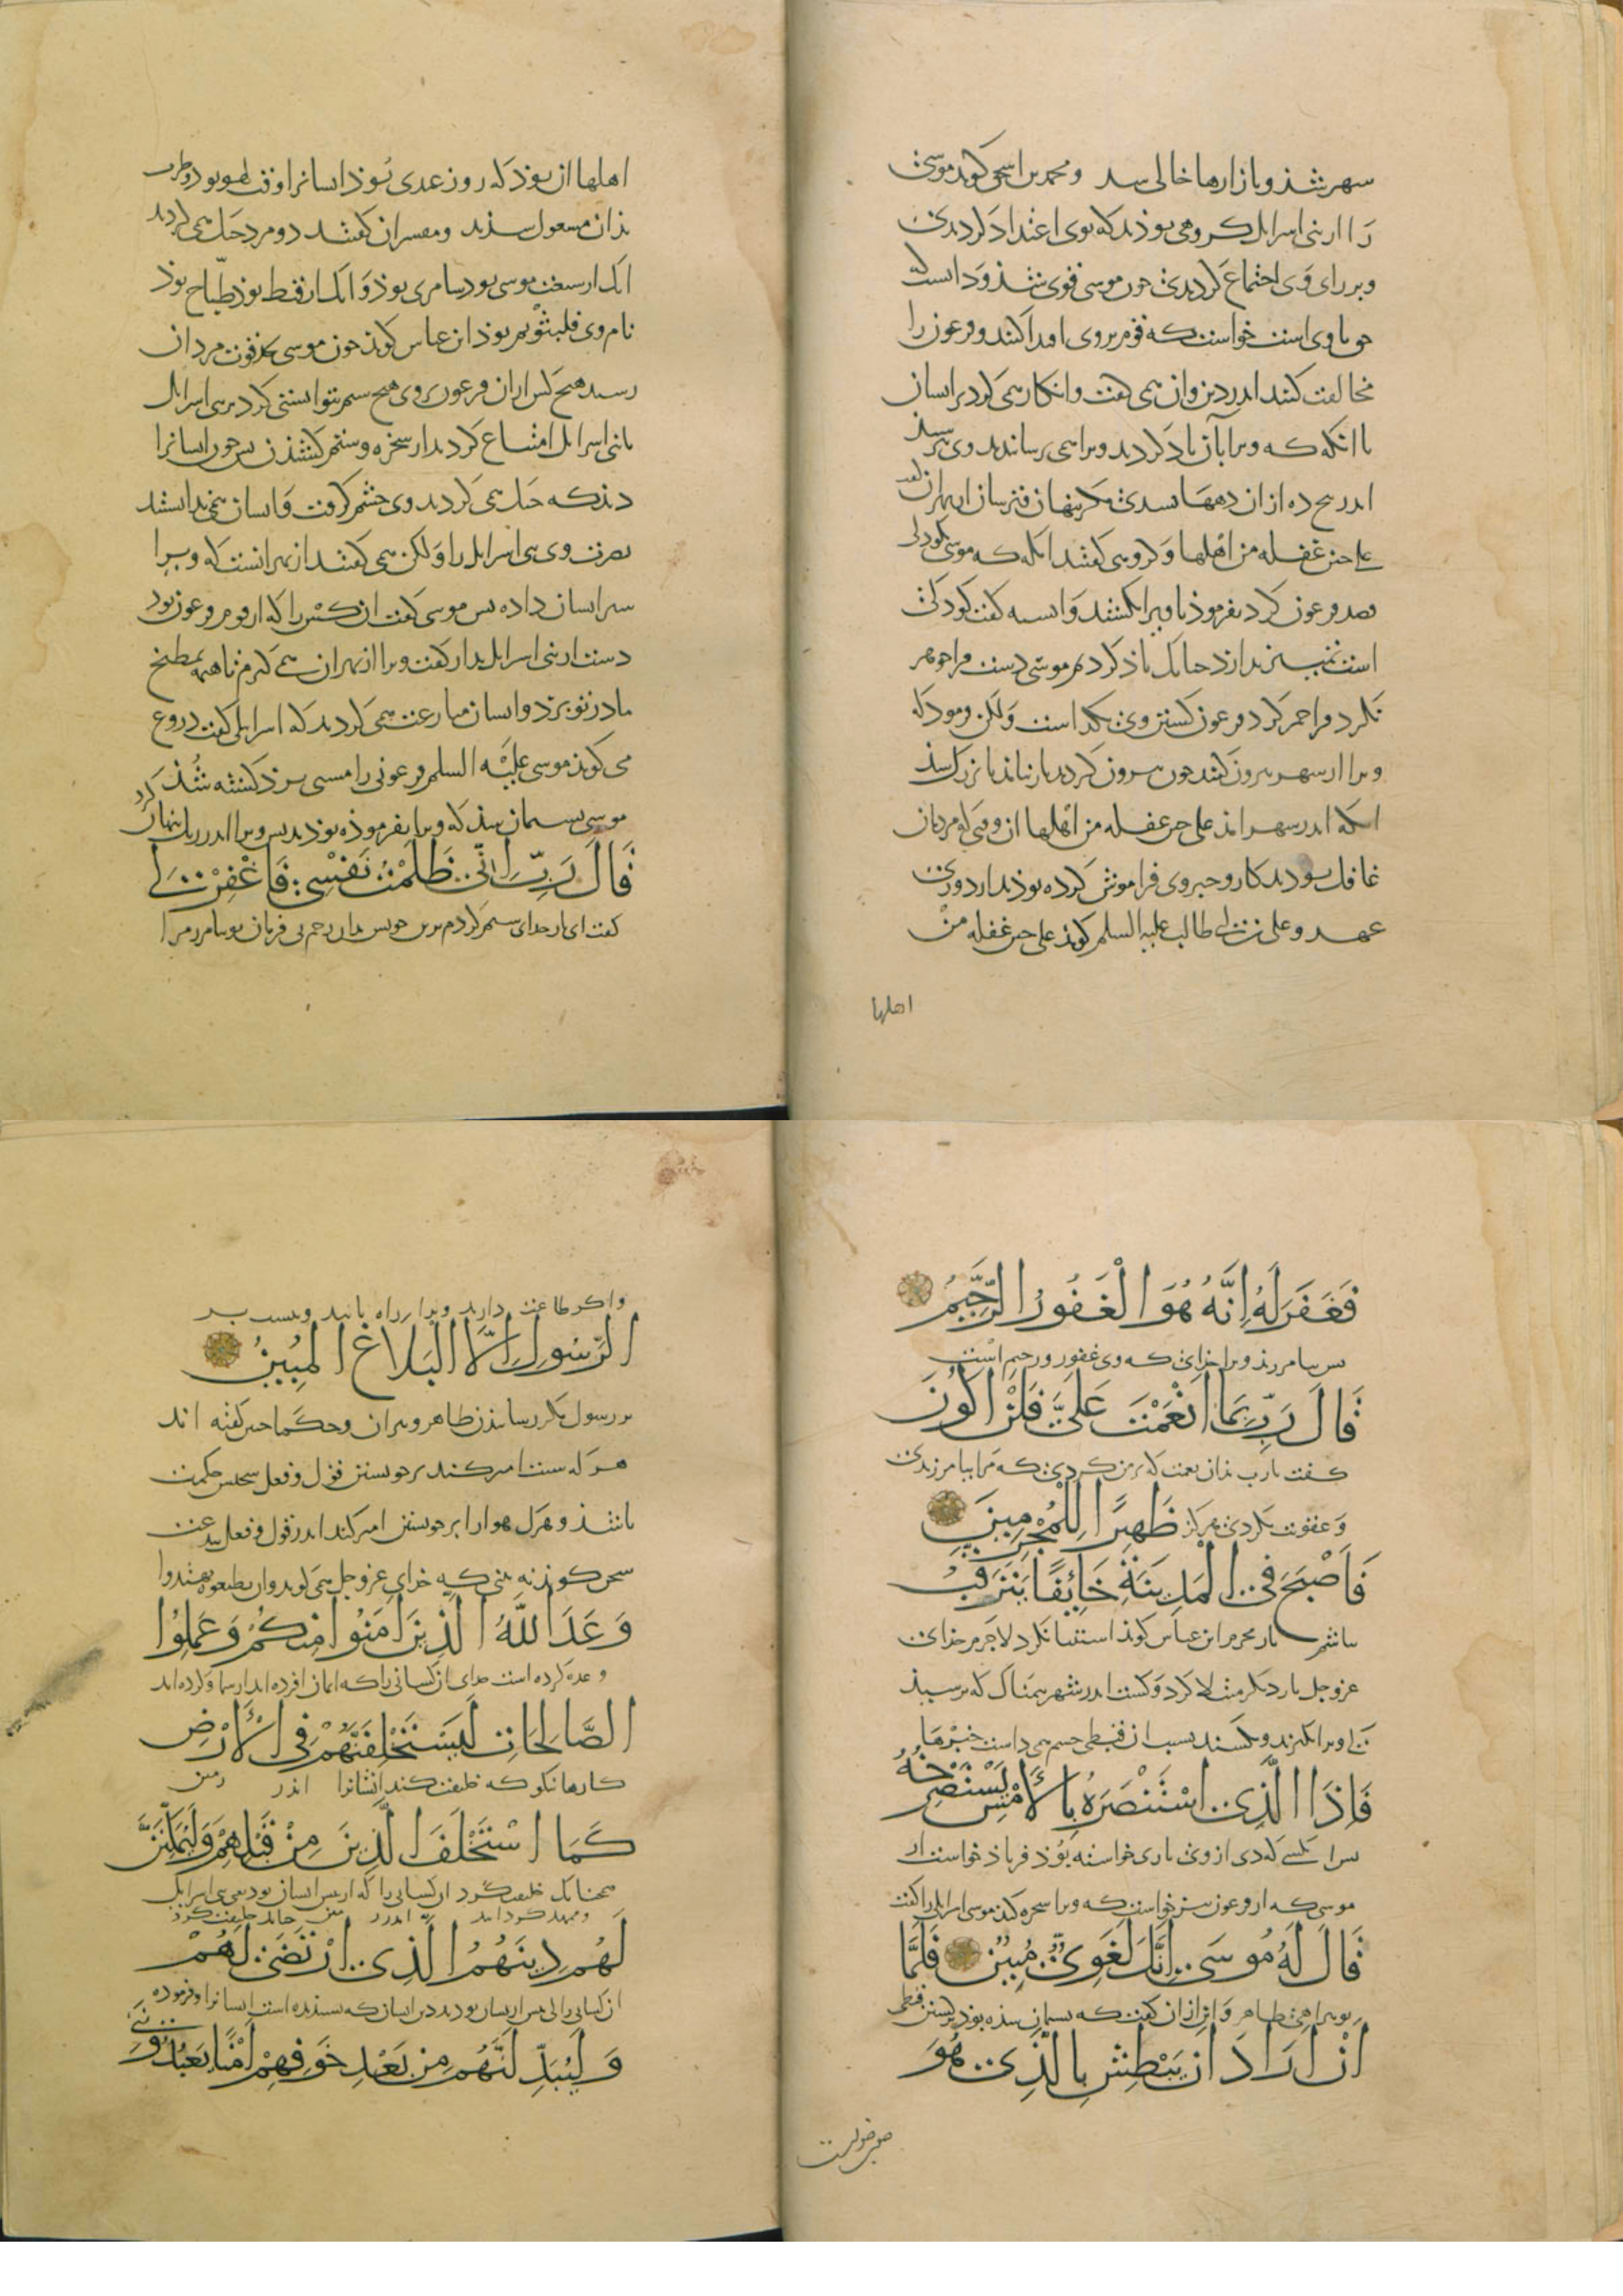 سهر شذ و بازارها خالی سد و محمد بن اسحق کوید موسی
را از بنی اسرایل کروهی بوذند که بوی اعتداد کردندی
و بر رای وی اجتماع کردندی جون موسی قوی شذ و دانست که
حق با وی است خواست که قوم بروی اقتدا کنند و فرعون را
مخالفت کنند اندر دین وان همی کفت و انکار همی کرد بر ایشان
تا انکه که ویرا بآن یاد کردند و ویرا همی
اندر هیچ ده از ان دهها نشدی مکر پنهان
علی حین غفلة من اهلها و کروهی کفتند انکه که موسی
قصد فرعون کرد بفرموذ تا ویرا بکشند و اسیه کفت کوذکی
است تمییز ندارد جنانک یاذ کردم موسی دست فرا جوهر
نکرد و فرا جمر کرد فرعون کشتن وی بکذاشت ولکن فرموذ که
ویرا از سهر بیرون کنند جون بیرون کردند باز نیامذ تا بزرک شذ
انکه اندر سهر امذ علی حین غفلة من اهلها ان وقتی که مردمان
غافل بوذند بکار و خبر وی فراموش کرده بوذند از دوری
عهد و علی بن ابی طالب علیه السلم کوید علی حین غفلة من
اهلها
اهلها ان بوذ که روز عیدی بوذ ایشانرا و وقت لهو بود و طرب
بذان مشغول شذند و مفسران کفتند دو مرد جنک همی کردند
یک از سبط موسی بود سامری بوذ و انک از قبط بوذ طباخ بوذ
نام وی فلیثور بوذ ابن عباس کوید جون موسی بقوت مردان
رسید هیچ کس از ان فرعون بر وی هیچ ستم نتوانستی کرد بر بنی اسرایل
تا بنی اسرایل امتناع کردند از سخره و ستم کشیذن بس جون ایشانرا
دید که جنک همی کردند وی خشم کرفت و ایشان نمی دانستند
نصرت وی بنی اسرایل را ولکن همی کفتند از بهر انست که ویرا
شیر ایشان داده بس موسی کفت ان کس را که از قوم فرعون بود
دست از بنی اسرایل بدار کفت ویرا از بهر ان همی کیرم تا هیمه بمطبخ
مادر تو برد و ایشان منازعت همی کردند که اسرایلی کفت دروغ
می کوید موسی علیه السلم فرعونی را مشتی بزد کشته شذ
موسی بشیمان شذ که ویرا بفرموذه نبوذند بس ویرا اندر ریک پنهان کرد
قَالَ رَبِّ إِنِّي ظَلَمْتُ نَفْسِي فَاغْفِرْ لِي
کفت ای بار خدای ستم کردم برتن خویش بیامرز مرا
فَغَفَرَ لَهُ إِنَّهُ هُوَ الْغَفُورُ الرَّحِيمُ
بس بیامرزید ویرا خدای که وی غفور و رحیم است
قَالَ رَبِّ بِمَا أَنْعَمْتَ عَلَيَّ فَلَنْ أَكُونَ
کفت یارب بذان نعمت که بر من کردی که مرا بیامرزیدی
و عقوبت نکردی هرکز ظَهِيرًا لِلْمُجْرِمِينَ
فَأَصْبَحَ فِي الْمَدِينَةِ خَائِفًا يَتَرَقَّبُ
نباشم یار مجرم ابن عباس کوید استثنا نکرد لاجرم خدای
عزوجل بار دیکر مبتلا کرد و کشت اندر شهر بیمناک که ترسید
که ویرا بکیرند و بکشند بسبب ان قبطی جشم همی داشت خبرها
فَإِذَا الَّذِي اسْتَنْصَرَهُ بِالْأَمْسِ يَسْتَصْرِخُهُ
بس ان کسی که دی از وی یاری خواسته بوذ فریاذ خواست از
موسی که ان فرعون خواست که ویرا سخره کند موسی اسرایلی را کفت
قَالَ لَهُ مُوسَى إِنَّكَ لَغَوِيٌّ مُبِينٌ فَلَمَّا
تو بیراهی ظاهر و این از ان کفت که بشیمان شذه بوذ بکشتن قبطی
أَنْ أَرَادَ أَنْ يَبْطِشَ بِالَّذِي هُوَ
واکر طاعت دارید ویرا راه یابید ونیست بر
الرَّسُولِ إِلَّا الْبَلَاغُ الْمُبِينُ
بر رسول مکر رسانیذن ظاهر و حکما جنین کفته اند
هر که سنت امیر کند بر خویشتن قول و فعل سخنش حکمت
باشذ و هرک هوا را بر خویشتن امیر کند اندر قول و فعل بدعت
سخن کوید نه بینی که خدای عزوجل همی کوید وان تطیعوه تهتدوا
وَعَدَ اللَّهُ الَّذِينَ آمَنُوا مِنْكُمْ وَعَمِلُوا
وعده کرده است خدای ان کسانی را که ایمان اورده اند از شما و کرده اند
الصَّالِحَاتِ لَيَسْتَخْلِفَنَّهُمْ فِي الْأَرْضِ
کارها نیکو که خلیفت کند ایشانرا اندر زمین
كَمَا اسْتَخْلَفَ الَّذِينَ مِنْ قَبْلِهِمْ وَلَيُمَكِّنَنَّ
همجنانک خلیفت کرد ان کسانی را که از بیش ایشان بودند بنی اسرایل
لَهُمْ دِينَهُمُ الَّذِي ارْتَضَى لَهُمْ
ان کسانی را که بیش از ایشان بودند دین ایشان که بسندیده است ایشانرا و فرموده
وَلَيُبَدِّلَنَّهُمْ مِنْ بَعْدِ خَوْفِهِمْ أَمْنًا يَعْبُدُونَنِي